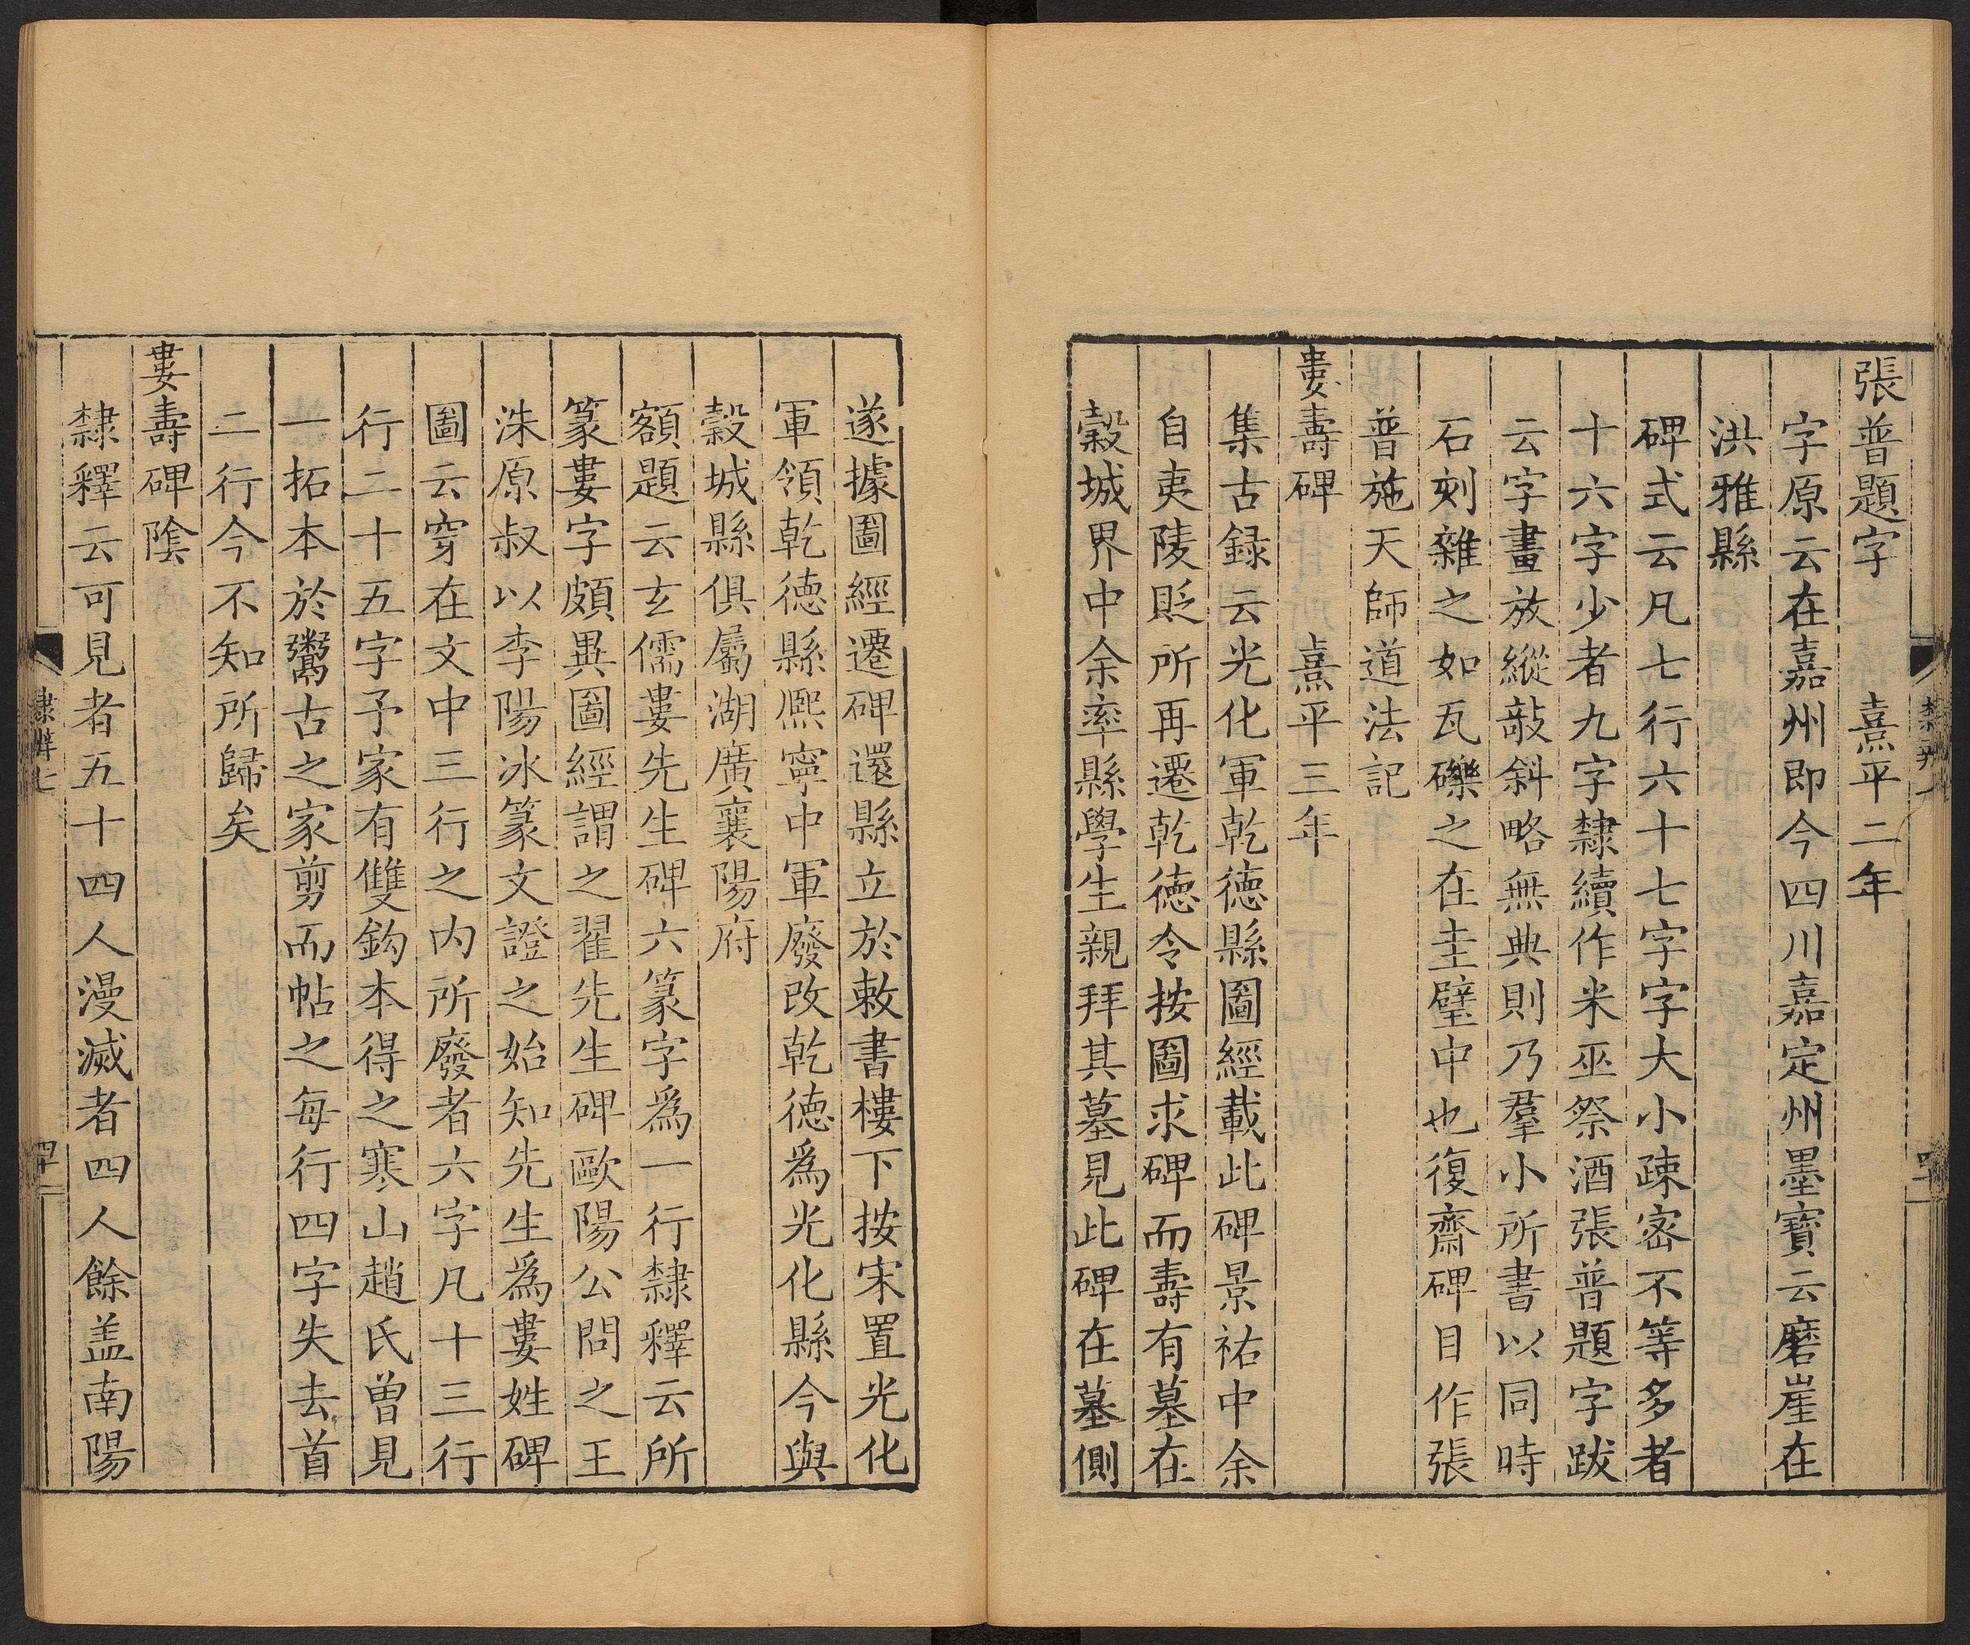 張普題字　熹平二年
字原云在嘉州即今四川嘉定州墨寶云磨崖在
洪雅縣
碑式云凡七行六十七字字大小疎宻不等多者
十六字少者九字隸續作米巫祭酒張普題字跋
云字畫放縱敧斜略無典則乃羣小所書以同時
石刻雜之如瓦礫之在圭璧中也復齋碑目作張
普施天師道法記
婁壽碑　熹平三年
集古録云光化軍乾德縣圖經載此碑景祐中余
自夷陵貶所再遷乾德令按圖求碑而壽有墓在
穀城界中余率縣學生親拜其墓見此碑在墓側
遂據圖經遷碑還縣立於敕書樓下按宋置光化
軍領乾德縣熈寧中軍廢改乾德爲光化縣今與
穀城縣俱屬湖廣襄陽府
額題云玄儒婁先生碑六篆字爲一行隸釋云所
篆婁字頗異圖經謂之翟先生碑歐陽公問之王
洙原叔以李陽冰篆文證之始知先生爲婁姓碑
圖云穿在文中三行之内所廢者六字凡十三行
行二十五字予家有雙鈎本得之寒山趙氏曾見
一拓本於鬻古之家剪而帖之每行四字失去首
二行今不知所歸矣
婁壽碑陰
隸釋云可見者五十四人漫滅者四人餘盖南陽
隸辨七
四十一